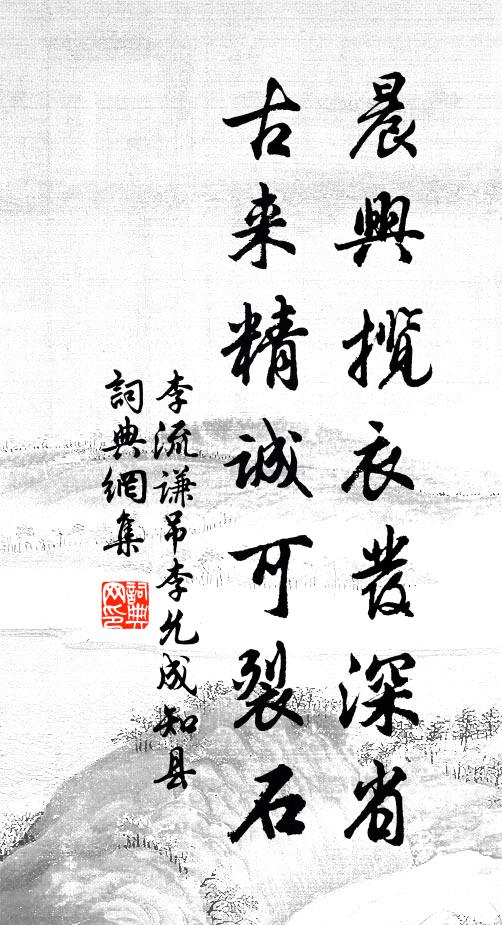 晨興攬衣發深省
古来精誠可裂石
李流谦吊李允成知县
詞典網集
詞典網印